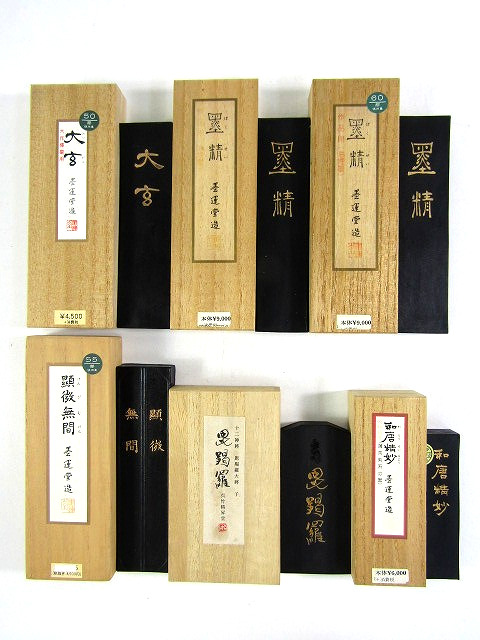 50
大玄
墨運堂造
¥4,500
大玄
墨精
ぼくせい
墨運堂造
本体¥9,000
墨精
60
墨精
ぼくせい
墨運堂造
本体¥9,000
墨精
55
顕微無間
墨運堂造
顕微
無間
十二神将
毘羯羅
毘羯羅
和唐精妙
墨運堂造
本体¥6,000
和唐精妙